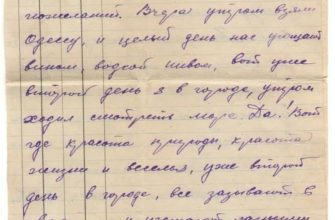 пожеланий. Вчера утром взяли
Одессу, и целый день нас угощают
вином, водкой пивом, вот уже
второй день я в городе, утром
ходил смотреть море. Да! Вот
где красота природы, красота
жизни и веселья, уже второй
день в городе, все зазывают в
и